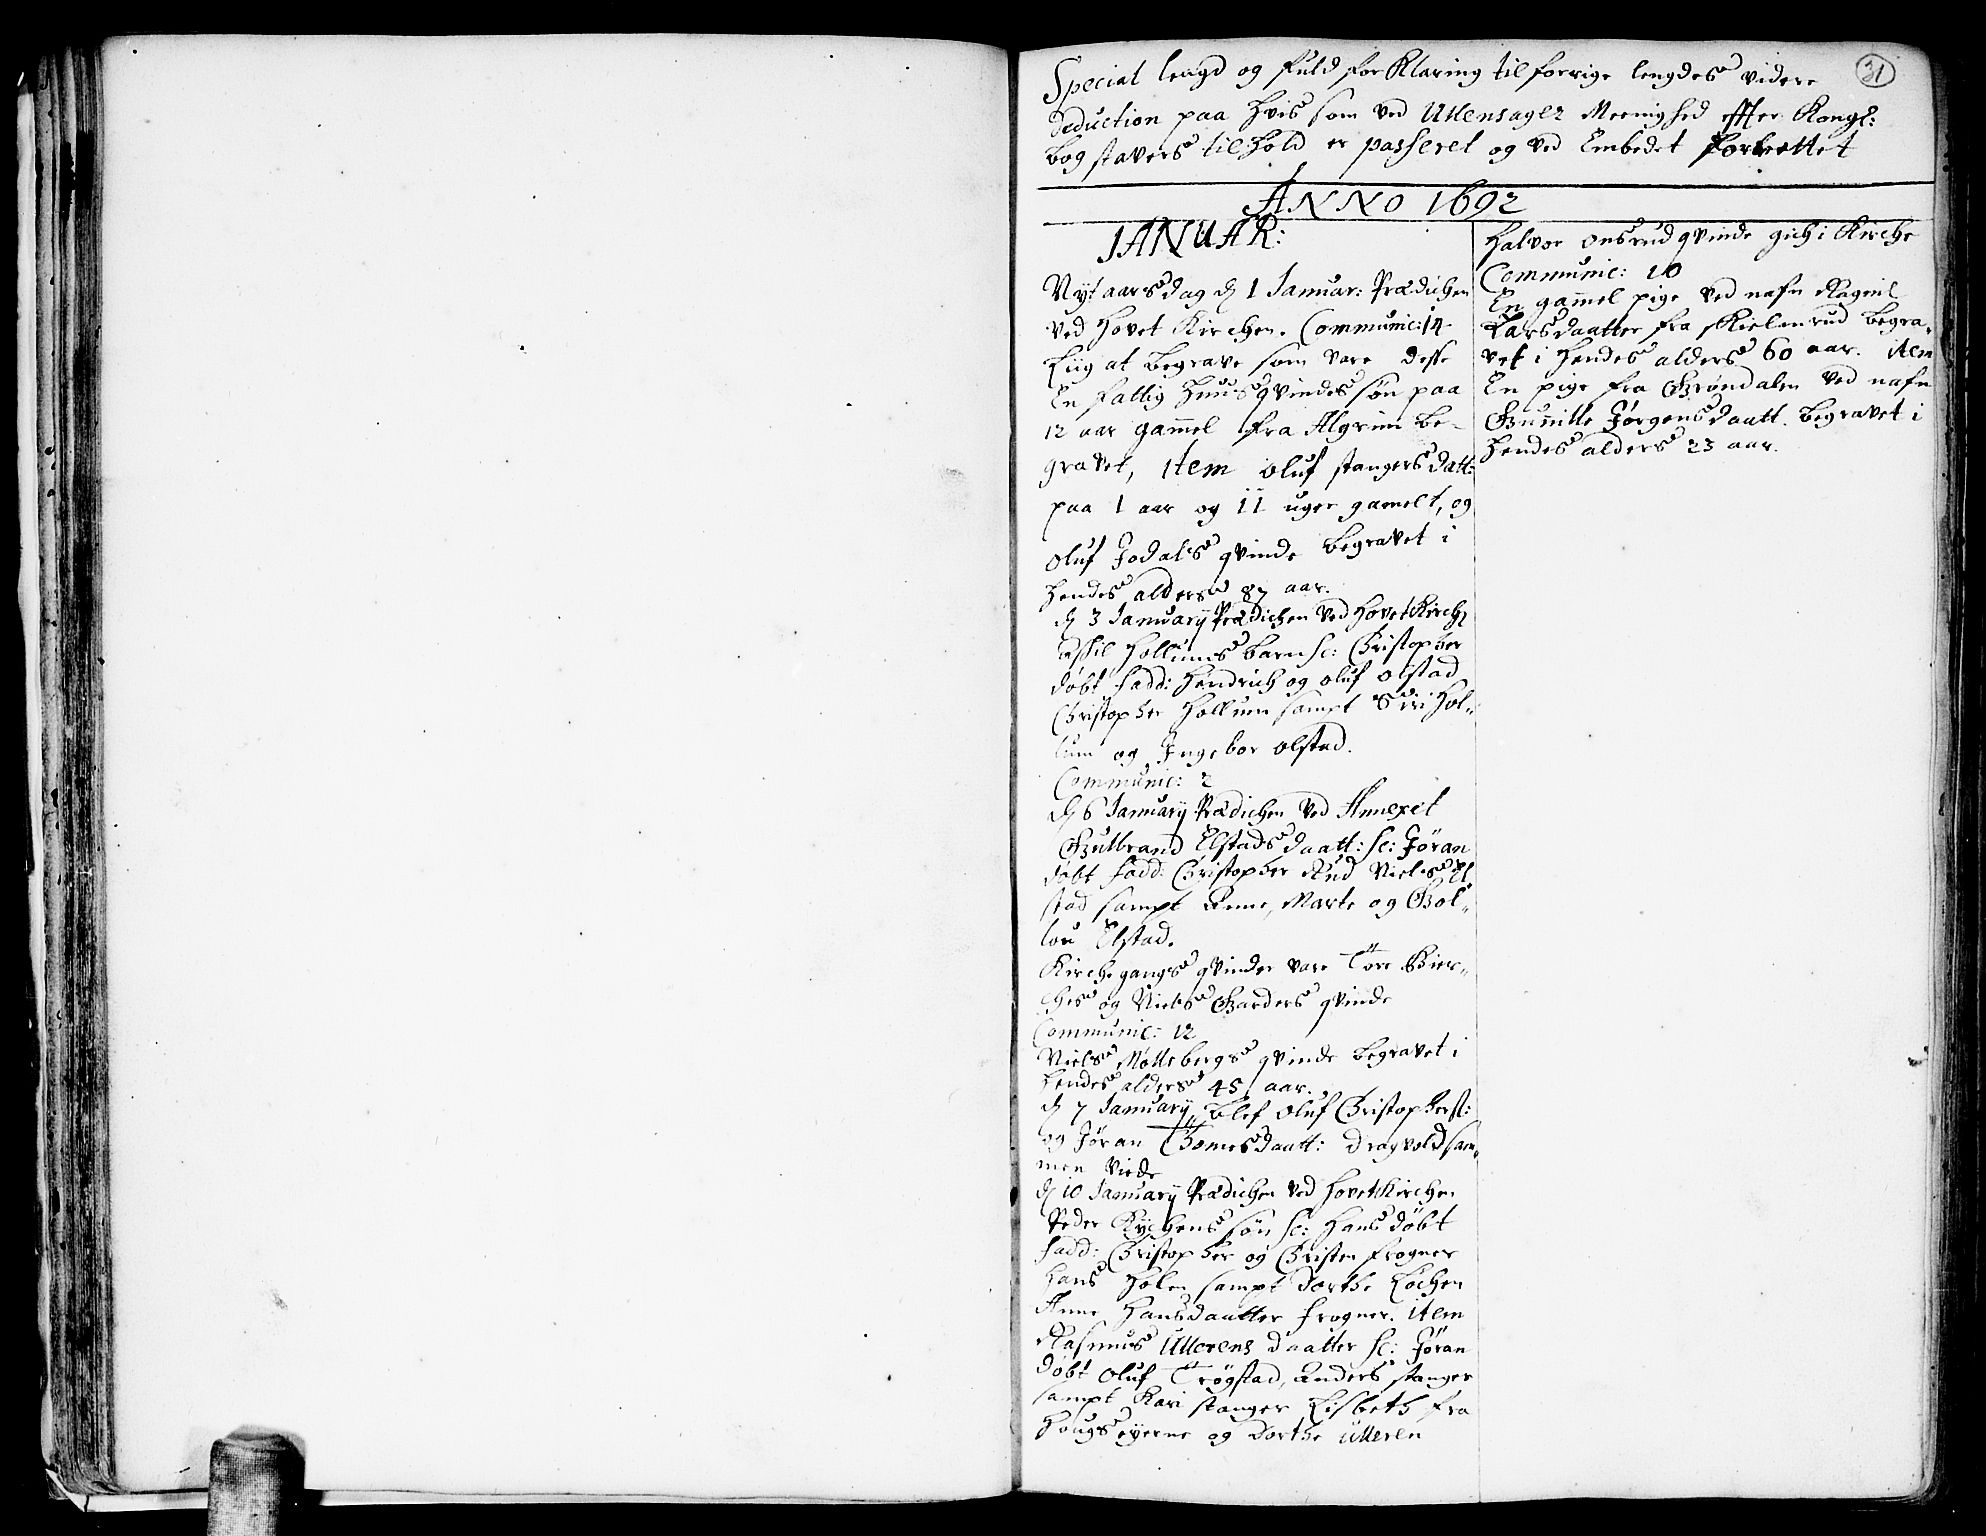 31
Special lengd og fuld forklaring til forrige lengdes videre
deduction paa hvis som ved Ullensager Meenighed effter Kongl:
bogstavers tilhold er passeret og ved Embedet forrettet
ANNO 1692
IANUAR:
Nytaarsdag d 1 Januar: Prædichen
ved Hovet Kirchen. Communic: 14
Liig at begrave som vare desse
En fattig huusqvindes søn paa
12 aar gammel fra Algrim be-
gravet, item oluf stangers datt:
paa 1 aar og 11 uger gamelt, og
oluf Jodals qvinde begravet i
hendes alders 87 aar.
d 3 January Prædichen ved hovetkirch
Askil Hollums barn sc: Christopher
døbt fadd: Hendrich og oluf olstad
Christopher Hollum sampt Siri Hol-
lum og Ingebor olstad.
Communic: 2
d 6 January Prædichen ved Annexet
Gulbrand Elstads daatt: sc: Jøran
døbt fadd: Christopher Rud Niels El
stad sampt Anne, Marte og Gol-
lou Elstad.
Kirchegangs qvinder vare Tore Bier-
ches og Niels Garders qvinde
Communic: 12
Niels Møllebergs qvinde begravet i
hendes alders 45 aar.
d 7 January blef oluf Christophersl:
og Jøran Thomesdaatt: Dragvold sam-
men viede
d 10 January Prædichen ved hovetkirchen
Peder Kychens søn sc: Hans døbt
fadd: Christopher og Christen frogner
Hans Holen sampt Dorthe Løchen
Anne Hansdaatter frogner. item
Rasmus Ullerens daatter sc: Jøran
døbt oluf Trøgstad, Anders stanger
sampt Kari stanger Lisbeth fra
Hougs eyerne og Dorthe Ulleren
Halvor onsrud qvinde gich i Kirche
Communic: 10
En gammel pige ved nafn Ragnil
Larsdaatter fra Kielenrud begra-
vet i hendes alders 60 aar. item
En pige fra Grøndalen ved nafn
Gunnille Jørgensdaatt. begravet i
hendes alders 23 aar.